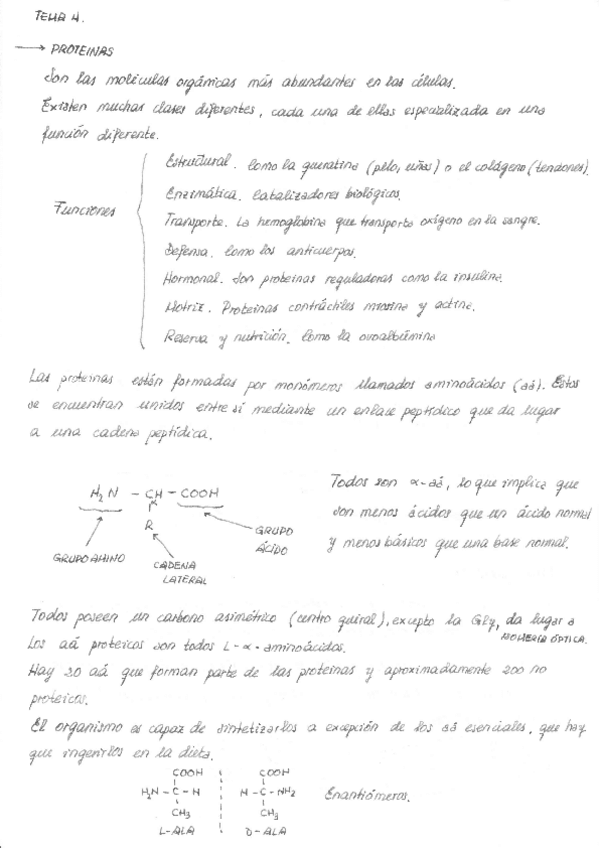 TEMA 4.
→ PROTEINAS
Son las moléculas orgánicas más abundantes en las células.
Existen muchas clases diferentes, cada una de ellas especializada en una
función diferente.
Funciones
Estructural. Como la queratina (pelo, uñas) o el colágeno (tendones).
Enzimática. Catalizadores biológicos.
Transporte. La hemoglobina que transporta oxígeno en la sangre.
Defensa. Como los anticuerpos.
Hormonal. Son proteinas reguladoras como la insulina.
Motriz. Proteinas contráctiles miosina y actina.
Reserva y nutrición. Como la ovoalbúmina
Las proteinas están formadas por monómeros llamados aminoácidos (aá). Estos
se encuentran unidos entre sí mediante un enlace peptídico que da lugar
a una cadena peptídica.
H2N - CH - COOH
R
GRUPO AMINO
CADENA
LATERAL
GRUPO
ÁCIDO
Todos son α-aá, lo que implica que
son menos ácidos que un ácido normal
y menos básicos que una base normal.
Todos poseen un carbono asimétrico (centro quiral), excepto la Gly, da lugar a
ISOMERÍA ÓPTICA.
Los aá proteicos son todos L-α-aminoácidos.
Hay 20 aá que forman parte de las proteinas y aproximadamente 200 no
proteicos.
El organismo es capaz de sintetizarlos a excepción de los aá esenciales, que hay
que ingerirlos en la dieta.
COOH COOH
H2N - C - H H - C - NH2 Enantiómeros.
CH3 CH3
L-ALA D-ALA